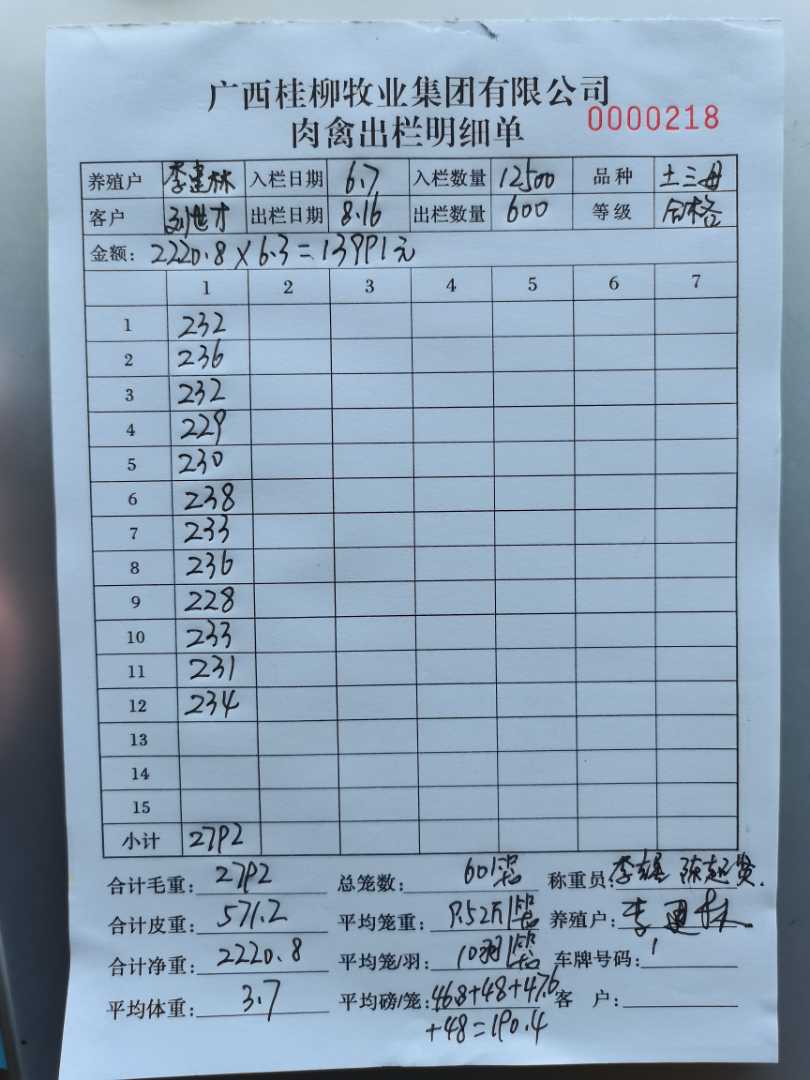 广西桂柳牧业集团有限公司
肉禽出栏明细单 0000218
养殖户 李建林 入栏日期 6.7 入栏数量 12500 品种 土三母
客户 刘世才 出栏日期 8.16 出栏数量 600 等级 合格
金额: 2220.8×6.3=13991元
1 2 3 4 5 6 7
1 232
2 236
3 232
4 229
5 230
6 238
7 233
8 236
9 228
10 233
11 231
12 234
13
14
15
小计 2792
合计毛重: 2792 总笼数: 60 称重员: 李 陈超贤.
合计皮重: 571.2 平均笼重: 9.52斤/笼 养殖户: 李建林
合计净重: 2220.8 平均笼/羽: 10羽/笼 车牌号码:
平均体重: 3.7 平均磅/笼: 46.8+48+47.6 客 户:
+48=190.4